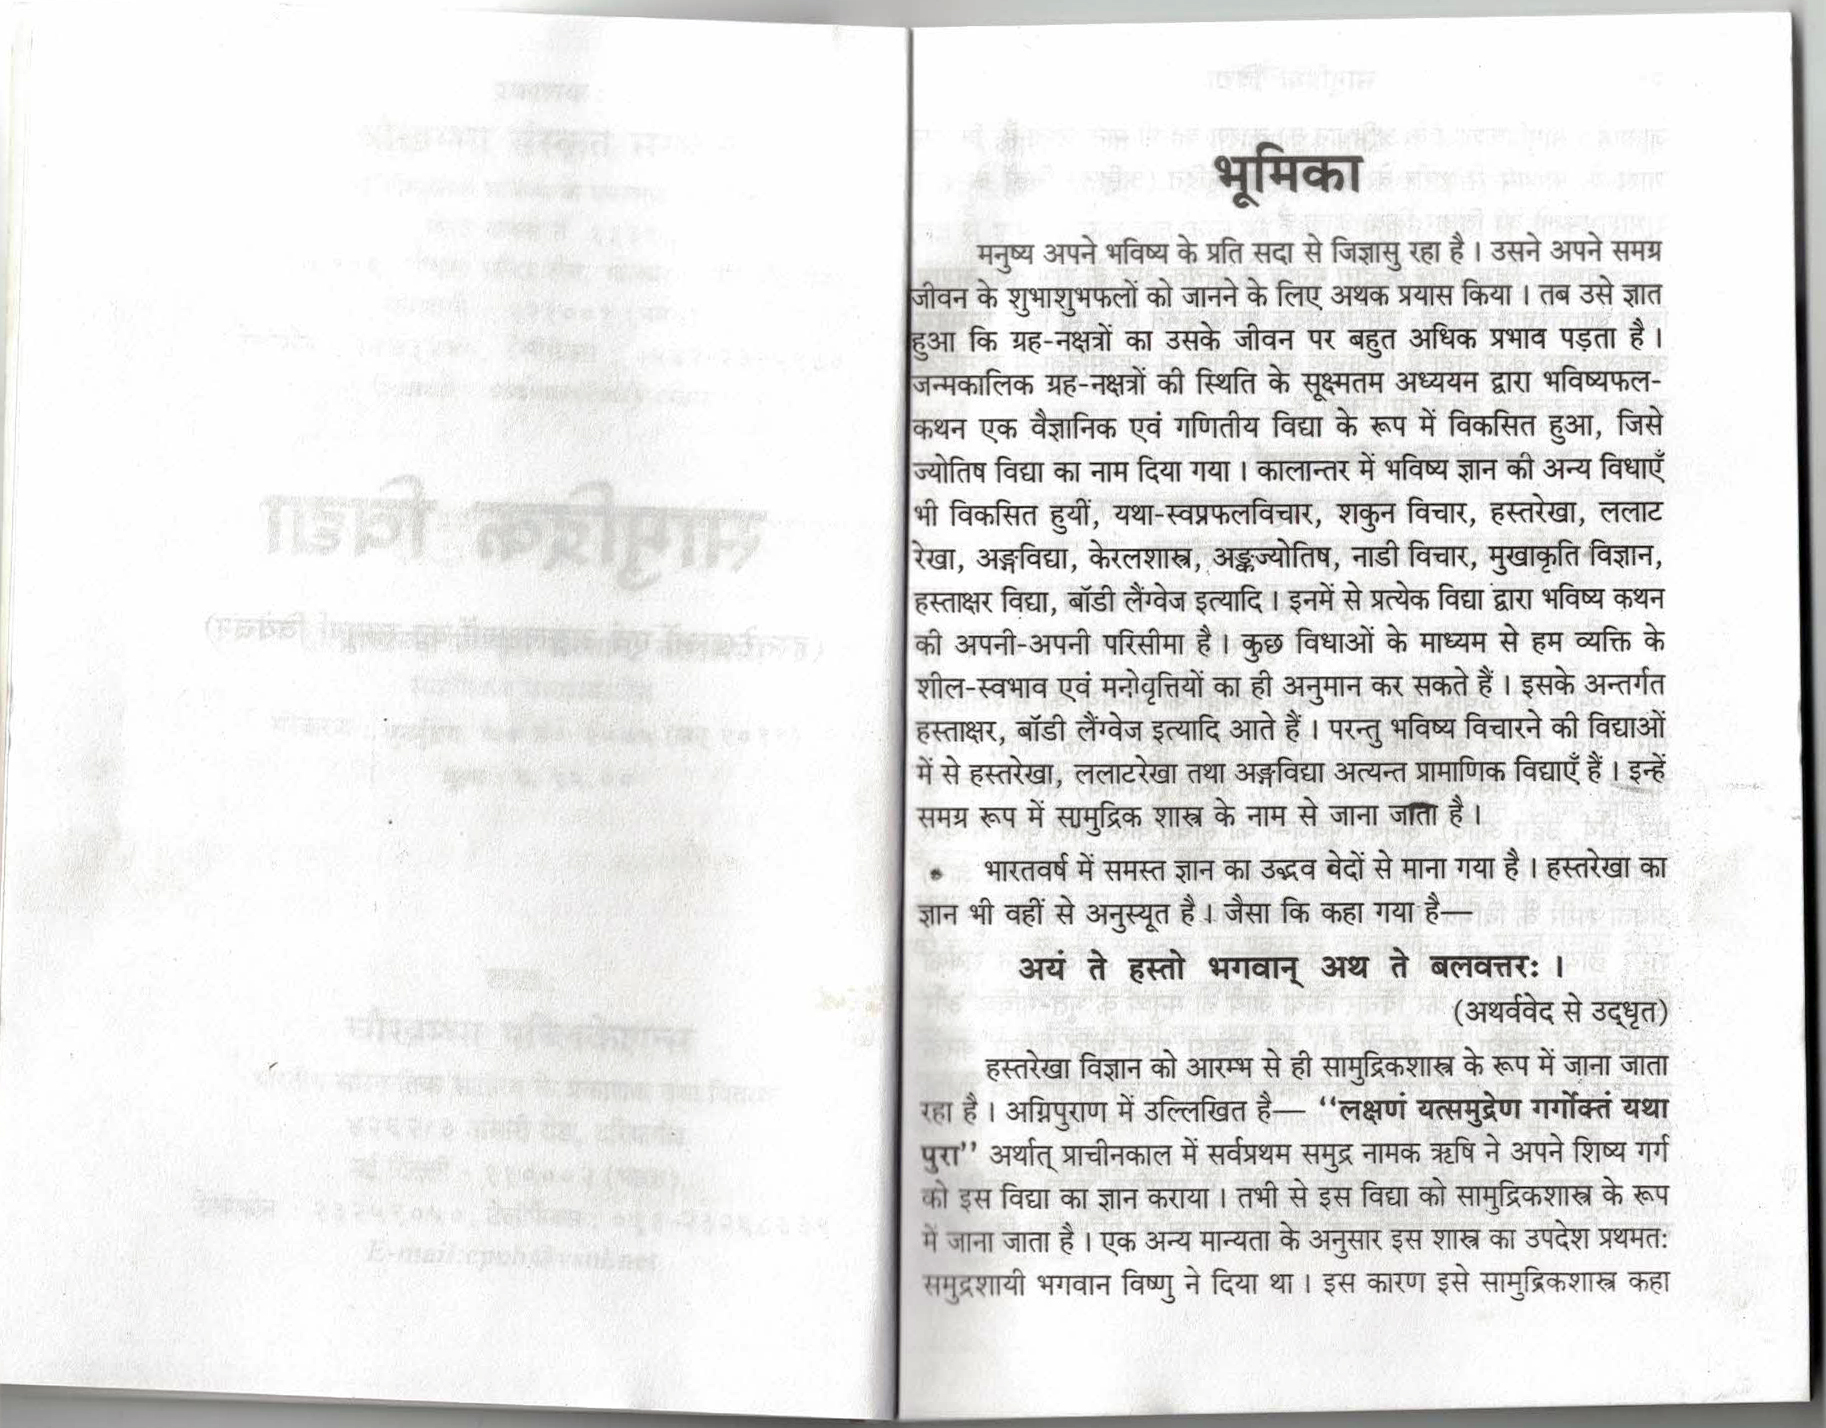 भूमिका
मनुष्य अपने भविष्य के प्रति सदा से जिज्ञासु रहा है । उसने अपने समग्र
जीवन के शुभाशुभफलों को जानने के लिए अथक प्रयास किया । तब उसे ज्ञात
हुआ कि ग्रह-नक्षत्रों का उसके जीवन पर बहुत अधिक प्रभाव पड़ता है ।
जन्मकालिक ग्रह-नक्षत्रों की स्थिति के सूक्ष्मतम अध्ययन द्वारा भविष्यफल-
कथन एक वैज्ञानिक एवं गणितीय विद्या के रूप में विकसित हुआ, जिसे
ज्योतिष विद्या का नाम दिया गया । कालान्तर में भविष्य ज्ञान की अन्य विधाएँ
भी विकसित हुयीं, यथा-स्वप्नफलविचार, शकुन विचार, हस्तरेखा, ललाट
रेखा, अङ्गविद्या, केरलशास्त्र, अङ्कज्योतिष, नाडी विचार, मुखाकृति विज्ञान,
हस्ताक्षर विद्या, बॉडी लैंग्वेज इत्यादि । इनमें से प्रत्येक विद्या द्वारा भविष्य कथन
की अपनी-अपनी परिसीमा है । कुछ विधाओं के माध्यम से हम व्यक्ति के
शील-स्वभाव एवं मनोवृत्तियों का ही अनुमान कर सकते हैं । इसके अन्तर्गत
हस्ताक्षर, बॉडी लैंग्वेज इत्यादि आते हैं । परन्तु भविष्य विचारने की विद्याओं
में से हस्तरेखा, ललाटरेखा तथा अङ्गविद्या अत्यन्त प्रामाणिक विद्याएँ हैं । इन्हें
समग्र रूप में सामुद्रिक शास्त्र के नाम से जाना जाता है ।
भारतवर्ष में समस्त ज्ञान का उद्भव वेदों से माना गया है । हस्तरेखा का
ज्ञान भी वहीं से अनुस्यूत है । जैसा कि कहा गया है—
अयं ते हस्तो भगवान् अथ ते बलवत्तरः ।
(अथर्ववेद से उद्धृत)
हस्तरेखा विज्ञान को आरम्भ से ही सामुद्रिकशास्त्र के रूप में जाना जाता
रहा है । अग्निपुराण में उल्लिखित है— “लक्षणं यत्समुद्रेण गर्गोक्तं यथा
पुरा” अर्थात् प्राचीनकाल में सर्वप्रथम समुद्र नामक ऋषि ने अपने शिष्य गर्ग
को इस विद्या का ज्ञान कराया । तभी से इस विद्या को सामुद्रिकशास्त्र के रूप
में जाना जाता है । एक अन्य मान्यता के अनुसार इस शास्त्र का उपदेश प्रथमतः
समुद्रशायी भगवान विष्णु ने दिया था । इस कारण इसे सामुद्रिकशास्त्र कहा